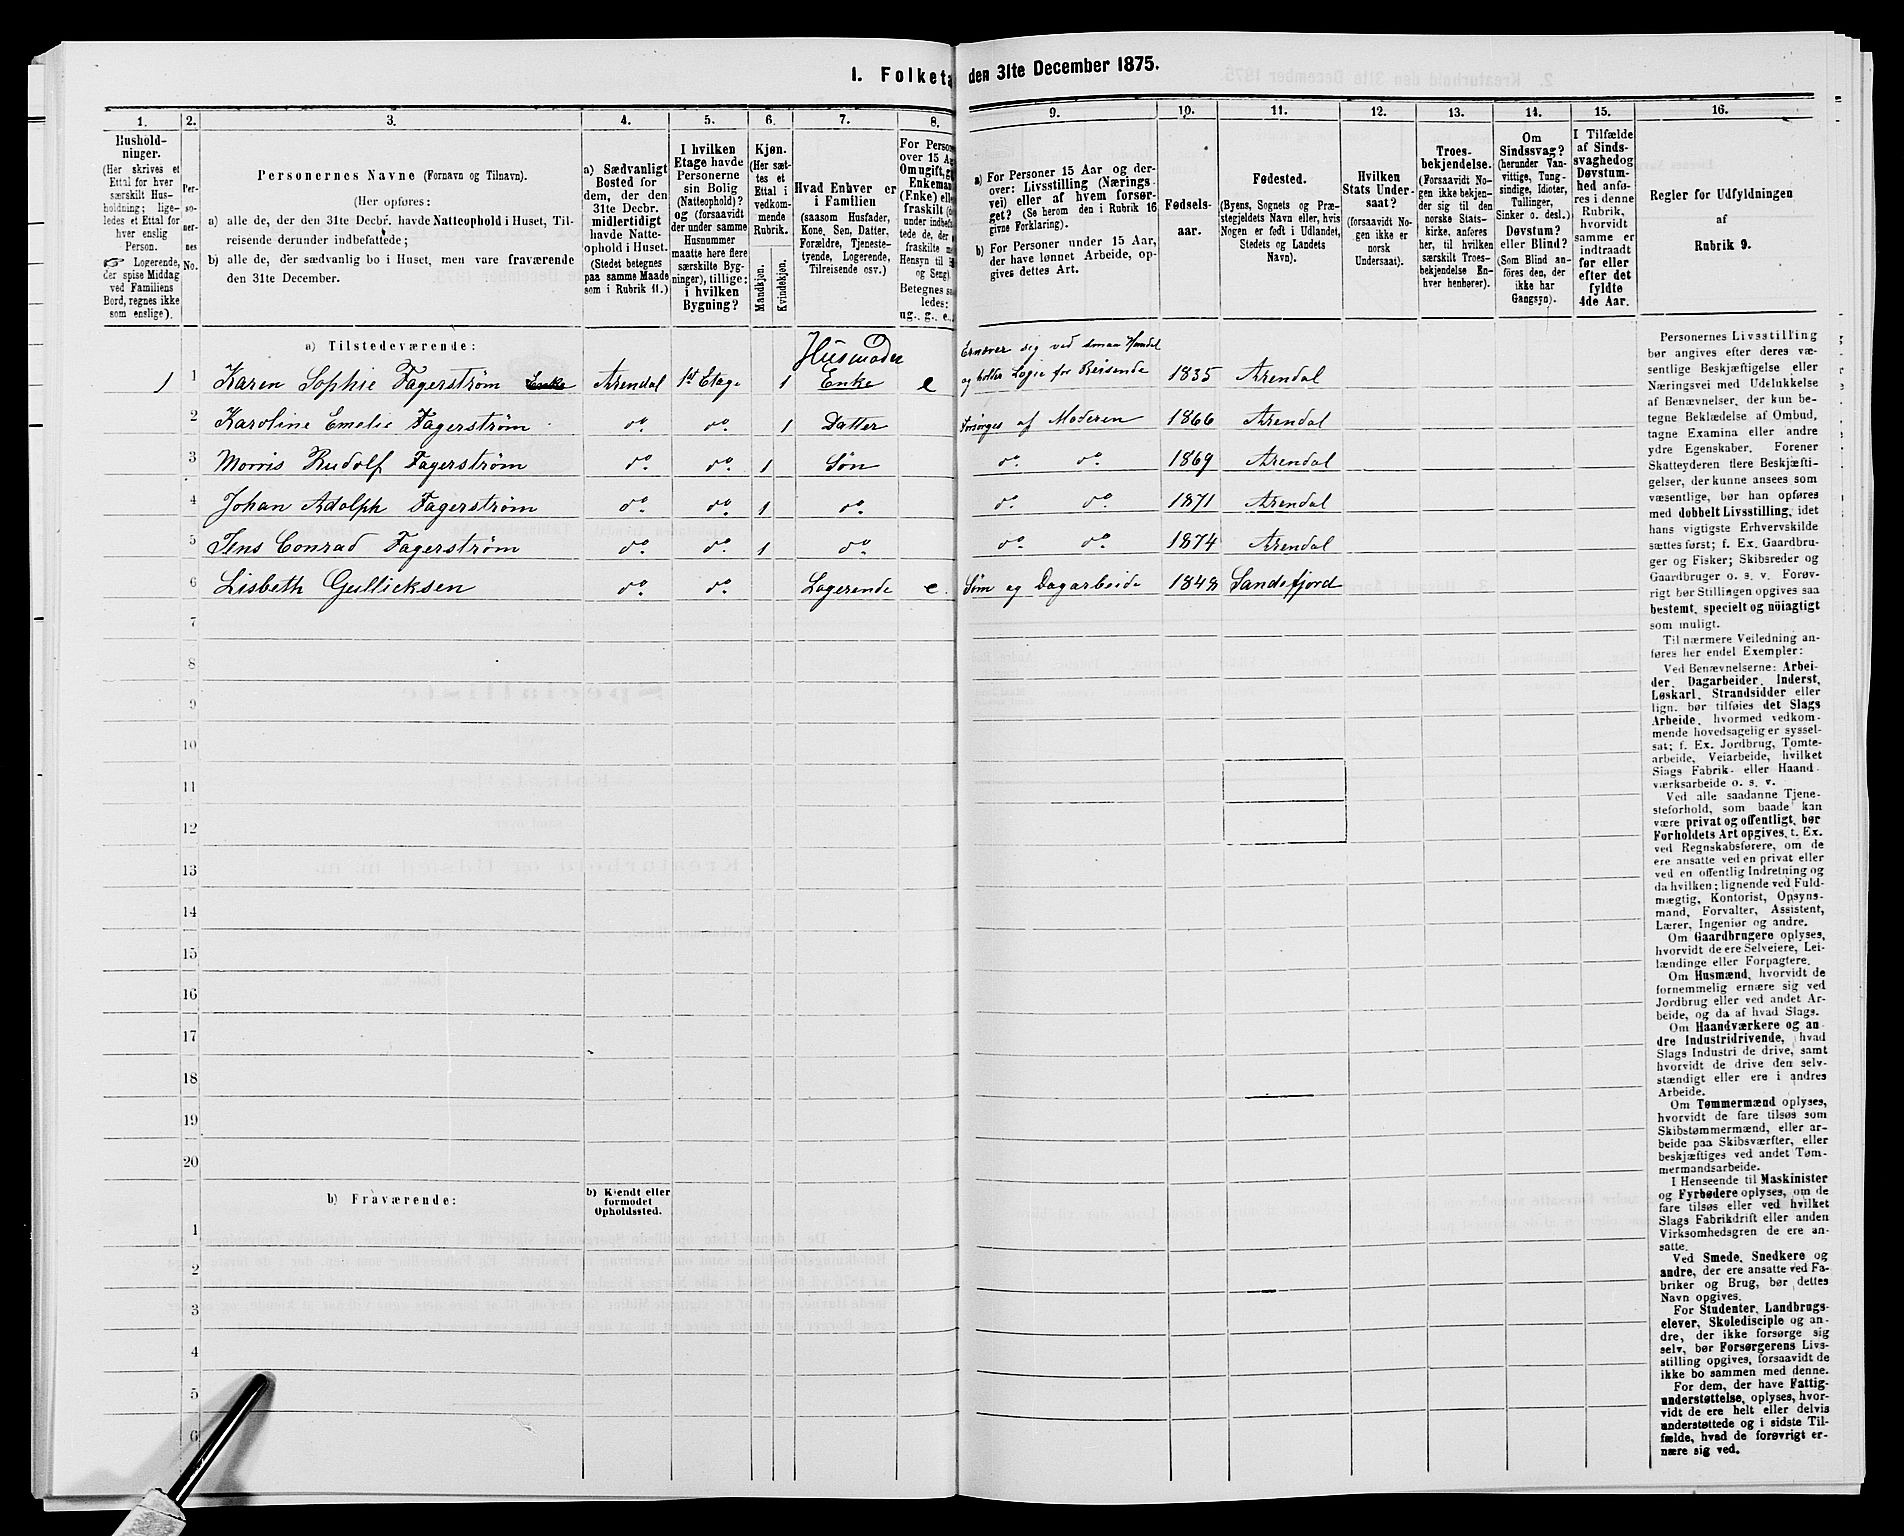 I. Folketæ
den 31te December 1875.
1.
Husholdninger.
(Her skrives et
Ettal for hver
særskilt Husholdning;
ligeledes et Ettal for
hver enslig
Person.
☞ Logerende,
der spise Middag
ved Familiens
Bord, regnes ikke
som enslige).
2.
Personernes
No.
3.
Personernes Navne (Fornavn og Tilnavn).
(Her opføres:
a) alle de, der den 31te Decbr. havde Natteophold i Huset, Tilreisende
derunder indbefattede;
b) alle de, der sædvanlig bo i Huset, men vare fraværende
den 31te December.
4.
a) Sædvanligt
Bosted for
dem, der den
31te Decbr.
midlertidigt
havde Natteophold
i Huset.
(Stedet betegnes
paa samme Maade
som i Rubrik 11.)
5.
I hvilken
Etage havde
Personerne
sin Bolig
(Natteophold)?
og (forsaavidt
der under samme
Husnummer
maatte høre flere
særskilte Bygninger),
tillige:
i hvilken
Bygning?
6.
Kjøn.
(Her sættes
et
Ettal i
vedkommende
Rubrik.
Mandkjøn.
Kvindekjøn.
7.
Hvad Enhver er
i Familien
(saasom Husfader,
Kone, Søn, Datter,
Forældre, Tjenestetyende,
Logerende,
Tilreisende osv.)
8.
For Person
over 15 Aa
Om ugift, g
Enkeman
(Enke) elle
fraskilt (
under indbefattede
de, der
fraskilte
Hensyn til
og Seng).
Betegnes saaledes:
ug., g., e.,
9.
a) For Personer 15 Aar og derover:
Livsstilling (Næringsvei)
eller af hvem forsørget?
(Se herom den i Rubrik 16
givne Forklaring).
b) For Personer under 15 Aar,
der have lønnet Arbeide, opgives
dettes Art.
10.
Fødselsaar.
11.
Fødested.
(Byens, Sognets og Præstegjeldets
Navn eller, hvis
Nogen er født i Udlandet,
Stedets og Landets
Navn).
12.
Hvilken
Stats Undersaat?
(forsaavidt Nogen
ikke er
norsk
Undersaat).
13.
Troesbekjendelse.
(Forsaavidt Nogen
ikke bekjender
sig til den
norske Statskirke,
anføres
her, til hvilken
særskilt Troesbekjendelse
Enhver
henhører).
14.
Om
Sindssvag?
(herunder Vanvittige,
Tungsindige,
Idioter,
Tullinger,
Sinker o. desl.)
Døvstum?
eller Blind?
(Som Blind anføres
den, der
ikke har
Gangsyn).
15.
I Tilfælde
af Sindssvaghed
og
Døvstumhed
anføres
i denne
Rubrik,
hvorvidt
samme er
indtraadt
før eller
efter det
fyldte
4de Aar.
16.
Regler for Udfyldningen
af
Rubrik 9.
a) Tilstedeværende:
Husmoder
Ernærer sig ved smaa Handel
1 1 Karen Sophie Fagerström Enke Arendal 1st Etage 1 Enke e og holder Logie for Reisende 1835 Arendal
2 Karoline Emelie Fagerstrøm do. do. 1 Datter Forsørges af Moderen 1866 Arendal
3 Morris Rudolf Fagerstrøm do. do. 1 Søn do. do. 1869 Arendal
4 Johan Adolph Fagerstrøm do. do. 1 do. do. do. 1871 Arendal
5 Jens Conrad Fagerstrøm do. do. 1 do. do. do. 1874 Arendal
6 Lisbeth Gullicksen do. do. Logerende e. Søm og Dagarbeide 1848 Sandefjord
7
8
9
10
11
12
13
14
15
16
17
18
19
20
b) Fraværende:
b) Kjendt eller
formodet
Opholdssted.
1
2
3
4
5
6
Personernes Livsstilling
bør angives efter deres væsentlige
Beskjæftigelse eller
Næringsvei med Udelukkelse
af Benævnelser, der kun betegne
Beklædelse af Ombud,
tagne Examina eller andre
ydre Egenskaber. Forener
Skatteyderen flere Beskjæftigelser,
der kunne ansees som
væsentlige, bør han opføres
med dobbelt Livsstilling, idet
hans vigtigste Erhvervskilde
sættes først; f. Ex. Gaardbruger
og Fisker; Skibsreder og
Gaardbruger o. s. v. Forøvrigt
bør Stillingen opgives saa
bestemt, specielt og nöiagtigt
som muligt.
Til nærmere Veiledning anføres
her endel Exempler:
Ved Benævnelserne: Arbeider,
Dagarbeider, Inderst,
Løskarl, Strandsidder eller
lign. bør tilføies det Slags
Arbeide, hvormed vedkommende
hovedsagelig er sysselsat;
f. Ex. Jordbrug, Tomtearbeide,
Veiarbeide, hvilket
Slags Fabrik- eller Haandværksarbeide
o. s. v.
Ved alle saadanne Tjenesteforhold,
som baade kan
være privat og offentligt, bør
Forholdets Art opgives, t. Ex.
ved Regnskabsførere, om de
ere ansatte ved en privat eller
ved en offentlig Indretning og
da hvilken; lignende ved Fuldmægtig,
Kontorist, Opsynsmand,
Forvalter, Assistent,
Lærer, Ingeniør og andre.
Om Gaardbrugere oplyses,
hvorvidt de ere Selveiere, Leilændinge
eller Forpagtere.
Om Husmænd, hvorvidt de
fornemmelig ernære sig ved
Jordbrug eller ved andet Arbeide,
og da af hvad Slags.
Om Haandværkere og andre
Industridrivende, hvad
Slags Industri de drive, samt
hvorvidt de drive den selvstændigt
eller ere i andres
Arbeide.
Om Tømmermænd oplyses,
hvorvidt de fare tilsøs som
Skibstømmermænd, eller arbeide
paa Skibsværfter, eller
beskjæftiges ved andet Tømmermandsarbeide.
I Henseende til Maskinister
og Fyrbødere oplyses, om de
fare tilsøs eller ved hvilket
Slags Fabrikdrift eller anden
Virksomhedsgren de ere ansatte.
Ved Smede, Snedkere og
andre, der ere ansatte ved Fabriker
og Brug, bør dettes
Navn opgives.
For Studenter, Landbrugselever,
Skoledisciple og andre,
der ikke forsørge sig
selv, bør Forsørgerens Livsstilling
opgives, forsaavidt de
ikke bo sammen med denne.
For dem, der have Fattigunderstøttelse,
oplyses, hvorvidt
de ere helt eller delvis
understøttede og i sidste Tilfælde,
hvad de forøvrigt ernære
sig ved.